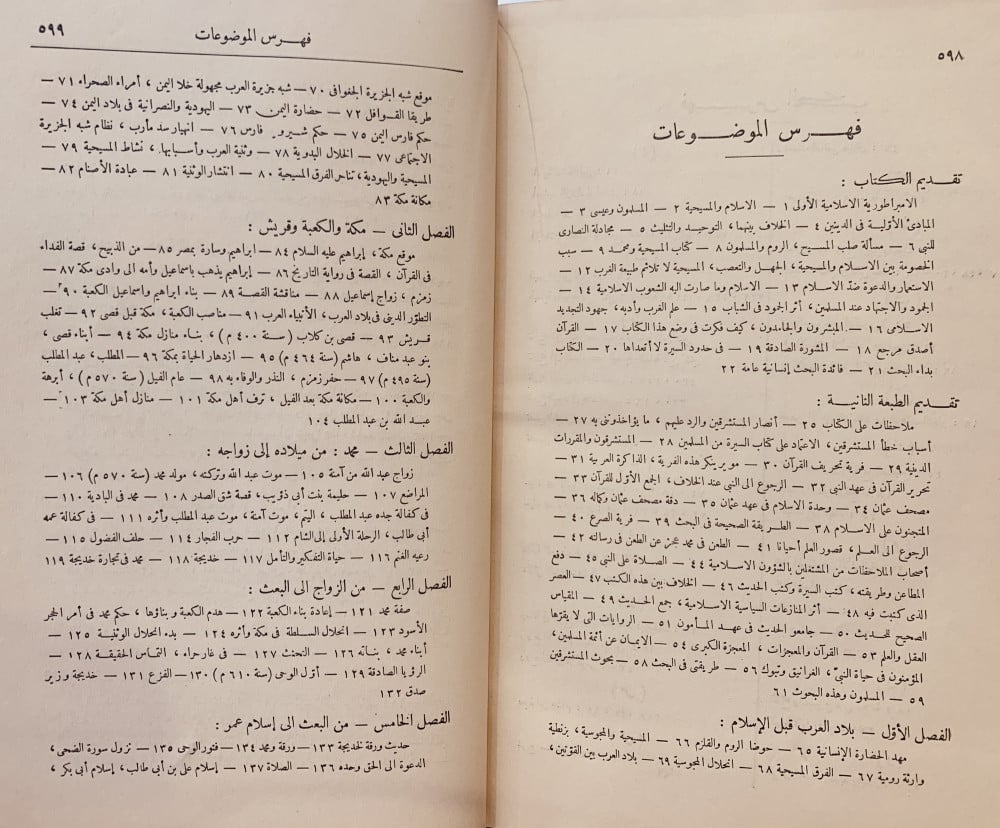 ٥٩٨
فهرس الموضوعات
تقديم الكتاب :
الامبراطورية الاسلامية الأولى ١ — الاسلام والمسيحية ٢ — المسلمون وعيسى ٣ —
المبادئ الأولية فى الدينين ٤ — الخلاف بينهما، التوحيد والتثليث ٥ — مجادلة النصارى
للنبى ٦ — مسألة صلب المسيح، الروم والمسلمون ٨ — كتاب المسيحية ومحمد ٩ — سبب
الخصومة بين الاسلام والمسيحية، الجهل والتعصب، المسيحية لا تلائم طبيعة الغرب ١٢ —
الاستعمار والدعوة ضدّ الاسلام ١٣ — الاسلام وما صارت اليه الشعوب الاسلامية ١٤ —
الجمود والاجتهاد عند المسلمين، أثر الجمود فى الشباب ١٥ — علم الغرب وأدبه، جهود التجديد
الاسلامى ١٦ — المبشرون والجامدون، كيف فكرت فى وضع هذا الكتاب ١٧ — القرآن
أصدق مرجع ١٨ — المشورة الصادقة ١٩ — فى حدود السيرة لا أتعداها ٢٠ — الكتاب
بداء البحث ٢١ — فائدة البحث إنسانية عامة ٢٢
تقديم الطبعة الثانية :
ملاحظات على الكتاب ٢٥ — أنصار المستشرقين والرد عليهم، ما يؤاخذوننى به ٢٧ —
أسباب خطأ المستشرقين، الاعتماد على كتاب السيرة من المسلمين ٢٨ — المستشرقون والمقررات
الدينية ٢٩ — فرية تحريف القرآن ٣٠ — موير ينكر هذه الفرية، الذاكرة العربية ٣١ —
تحرير القرآن فى عهد النبى ٣٢ — الرجوع الى النبى عند الخلاف، الجمع الأوّل للقرآن ٣٣ —
مصحف عثمان ٣٤ — وحدة الاسلام فى عهد عثمان ٣٥ — دقة مصحف عثمان وكماله ٣٦ —
المتجنون على الاسلام ٣٨ — الطريقة الصحيحة فى البحث ٣٩ — فرية الصرع ٤٠ —
الرجوع الى العلم، قصور العلم أحيانا ٤١ — الطعن فى محمد عجز عن الطعن فى رسالته ٤٢ —
أصحاب الملاحظات من المشتغلين بالشؤون الاسلامية ٤٤ — الصلاة على النبى ٤٥ — دفع
المطاعن وطريقته، كتب السيرة وكتب الحديث ٤٦ — الخلاف بين هذه الكتب ٤٧ — العصر
الذى كتبت فيه ٤٨ — أثر المنازعات السياسية الاسلامية، جمع الحديث ٤٩ — المقياس
الصحيح للحديث ٥٠ — جامعو الحديث فى عهد المأمون ٥١ — الروايات التى لا يقرّها
العقل والعلم ٥٣ — القرآن والمعجزات، المعجزة الكبرى ٥٤ — الايمان عن أئمة المسلمين،
المؤمنون فى حياة النبىّ، الغرانيق وتبوك ٥٦ — طريقتى فى البحث ٥٨ — بحوث المستشرقين
٥٩ — المسلمون وهذه البحوث ٦١
الفصل الأوّل — بلاد العرب قبل الإسلام :
مهد الحضارة الإنسانية ٦٥ — حوضا الروم والقلزم ٦٦ — المسيحية والمجوسية، بزنطية
وارثة رومية ٦٧ — الفرق المسيحية ٦٨ — انحلال المجوسية ٦٩ — بلاد العرب بين القوّتين،
فهرس الموضوعات
٥٩٩
موقع شبه الجزيرة الجغرافى ٧٠ — شبه جزيرة العرب مجهولة خلا اليمن، أمراء الصحراء ٧١ —
طريقا القوافل ٧٢ — حضارة اليمن ٧٣ — اليهودية والنصرانية فى بلاد اليمن ٧٤ —
حكم فارس اليمن ٧٥ — حكم شيرو فارس ٧٦ — انهيار سد مأرب، نظام شبه الجزيرة
الاجتماعى ٧٧ — الخلال البدوية ٧٨ — وثنية العرب وأسبابها، نشاط المسيحية ٧٩ —
المسيحية واليهودية، تناحر الفرق المسيحية ٨٠ — انتشار الوثنية ٨١ — عبادة الأصنام ٨٢ —
مكانة مكة ٨٣
الفصل الثانى — مكة والكعبة وقريش :
موقع مكة، إبراهيم عليه السلام ٨٤ — ابراهيم وسارة بمصر ٨٥ — من الذبيح، قصة الفداء
فى القرآن، القصة فى رواية التاريخ ٨٦ — إبراهيم يذهب باسماعيل وأمه الى وادى مكة ٨٧ —
زمزم، زواج إسماعيل ٨٨ — مناقشة القصة ٨٩ — بناء ابراهيم واسماعيل الكعبة ٩٠ —
التطوّر الدينى فى بلاد العرب، الأنبياء العرب ٩١ — مناصب الكعبة، مكة قبل قصى ٩٢ — تغلب
قريش ٩٣ — قصى بن كلاب (سنة ٤٠٠ م)، بناء منازل مكة ٩٤ — أبناء قصى،
بنو عبد مناف، هاشم (سنة ٤٦٤ م) ٩٥ — ازدهار الحياة بمكة ٩٦ — المطلب، عبد المطلب
(سنة ٤٩٥ م) ٩٧ — حفر زمزم، النذر والوفاء به ٩٨ — عام الفيل (سنة ٥٧٠ م)، أبرهة
والكعبة ١٠٠ — مكانة مكة بعد الفيل، ترف أهل مكة ١٠١ — منازل أهل مكة ١٠٣ —
عبد الله بن عبد المطلب ١٠٤
الفصل الثالث — محمد : من ميلاده إلى زواجه :
زواج عبد الله من آمنة ١٠٥ — موت عبد الله وتركته، مولد محمد (سنة ٥٧٠ م) ١٠٦ —
المراضع ١٠٧ — حليمة بنت أبى ذؤيب، قصة شق الصدر ١٠٨ — محمد فى البادية ١١٠ —
فى كفالة جده عبد المطلب، اليتم، موت آمنة، موت عبد المطلب وأثره ١١١ — فى كفالة عمه
أبى طالب، الرحلة الأولى إلى الشام ١١٢ — حرب الفجار ١١٤ — حلف الفضول ١١٥ —
رعيه الغنم ١١٦ — حياة التفكير والتأمل ١١٧ — خديجة ١١٨ — محمد فى تجارة خديجة ١١٩
الفصل الرابع — من الزواج الى البعث :
صفة محمد ١٢١ — إعادة بناء الكعبة ١٢٢ — هدم الكعبة وبناؤها، حكم محمد فى أمر الحجر
الأسود ١٢٣ — انحلال السلطة فى مكة وأثره ١٢٤ — بدء انحلال الوثنية ١٢٥ —
أبناء محمد، بناته ١٢٦ — التحنث ١٢٧ — فى غار حراء، التماس الحقيقة ١٢٨ —
الرؤيا الصادقة ١٢٩ — أوّل الوحى (سنة ٦١٠ م) ١٣٠ — الفزع ١٣١ — خديجة وزير
صدق ١٣٢
الفصل الخامس — من البعث الى إسلام عمر :
حديث ورقة لخديجة ١٣٣ — ورقة ومحمد ١٣٤ — فتور الوحى ١٣٥ — نزول سورة الضحى،
الدعوة الى الحق وحده ١٣٦ — الصلاة ١٣٧ — إسلام على بن أبى طالب، إسلام أبى بكر،